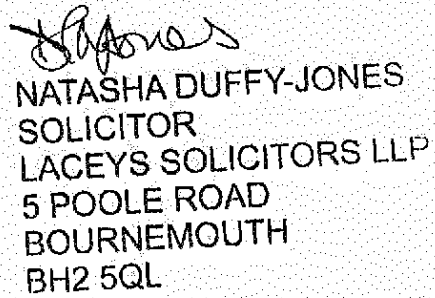 NATASHA DUFFY-JONES
SOLICITOR
LACEYS SOLICITORS LLP
5 POOLE ROAD
BOURNEMOUTH
BH2 5QL